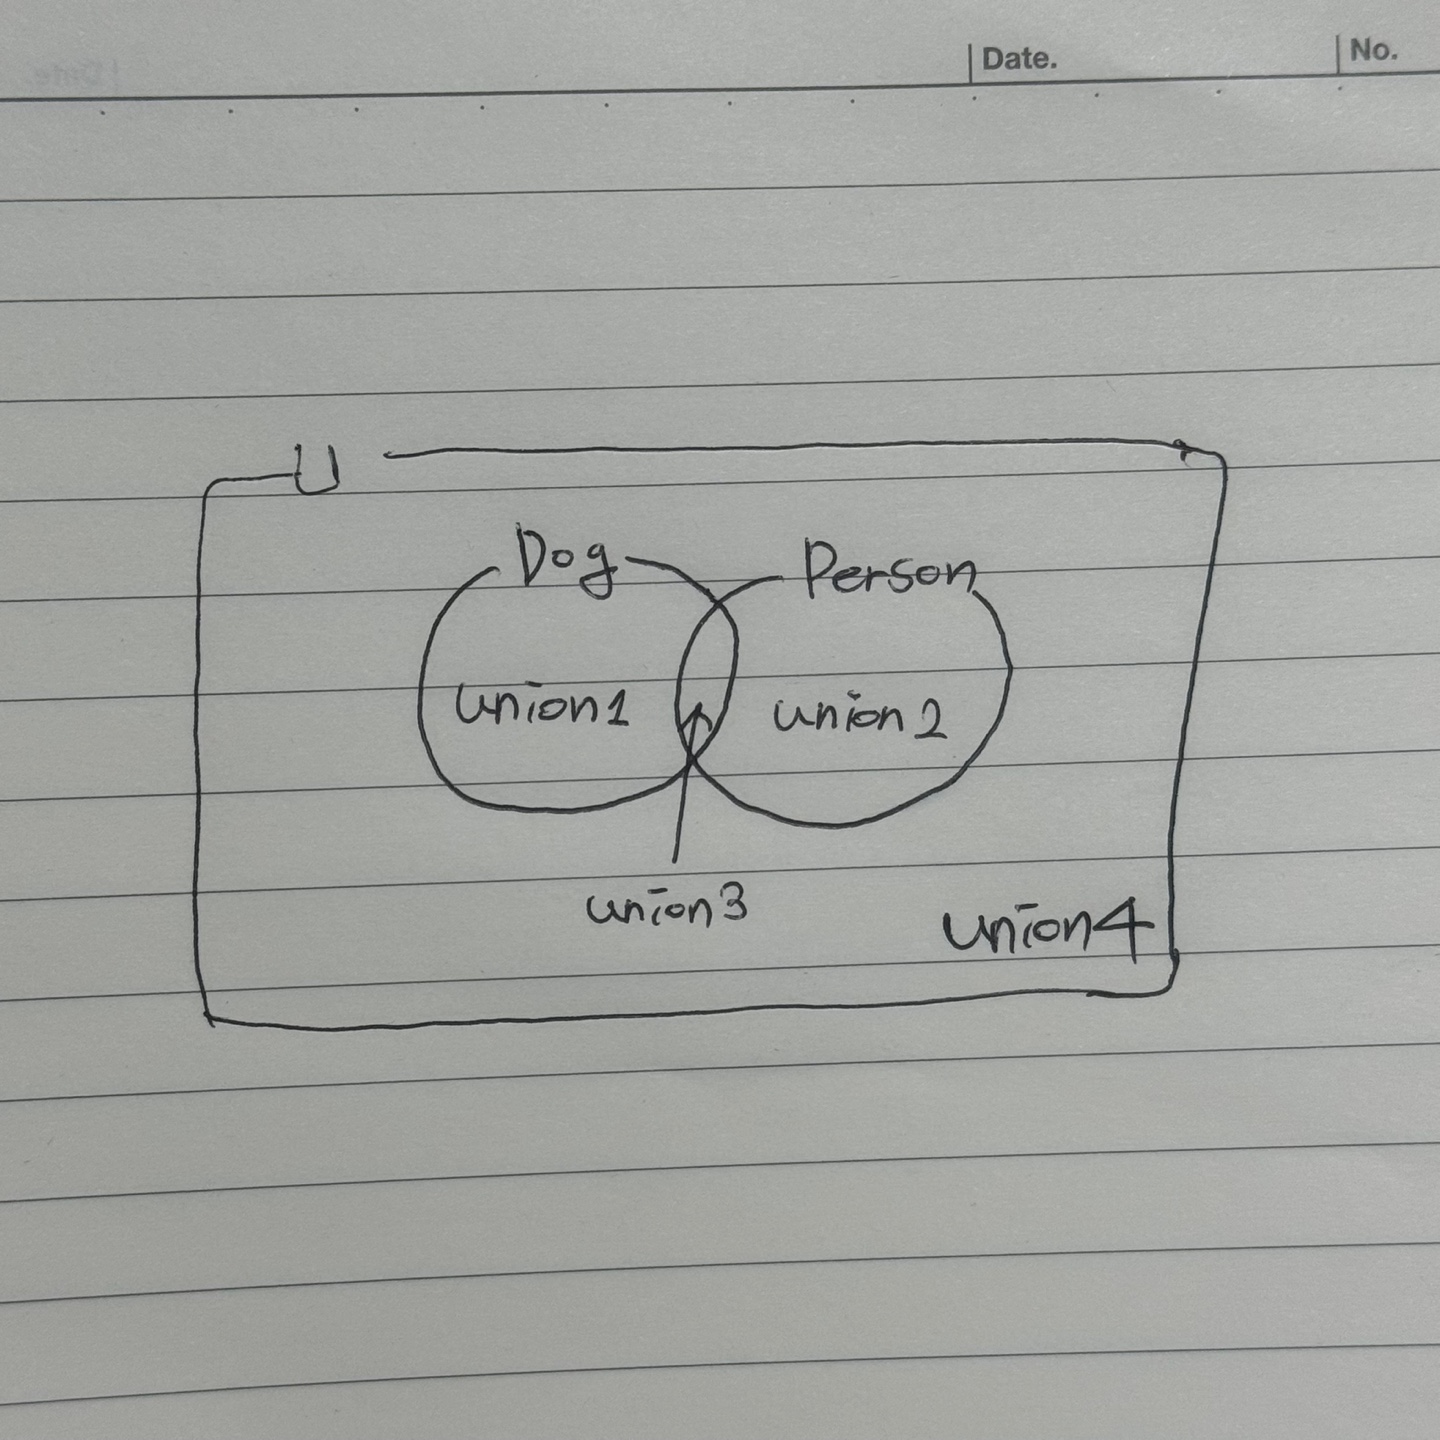 Date.
No.
U
Dog
Person
union1
union2
union3
union4